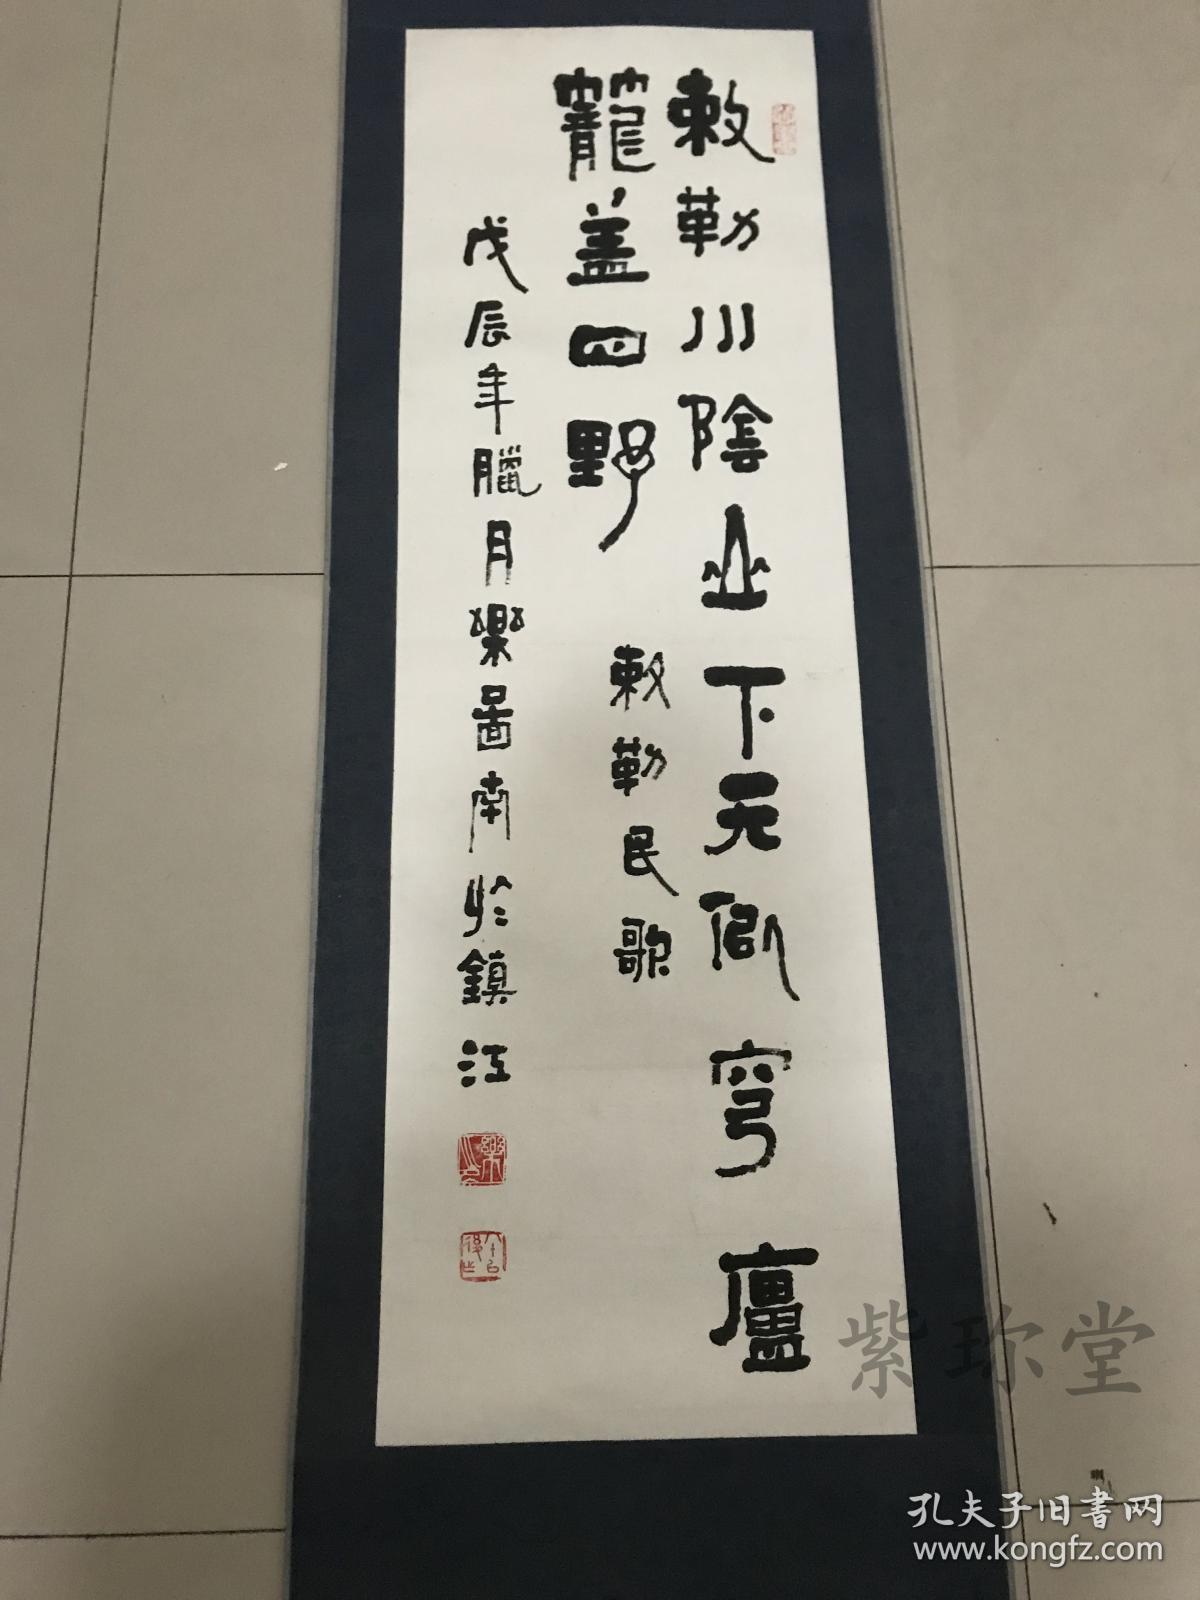 敕勒川陰山下天似穹廬
籠盖四野
敕勒民歌
戊辰年臘月樂啚南於鎮江
紫珎堂
孔夫子旧書网
www.kongfz.com